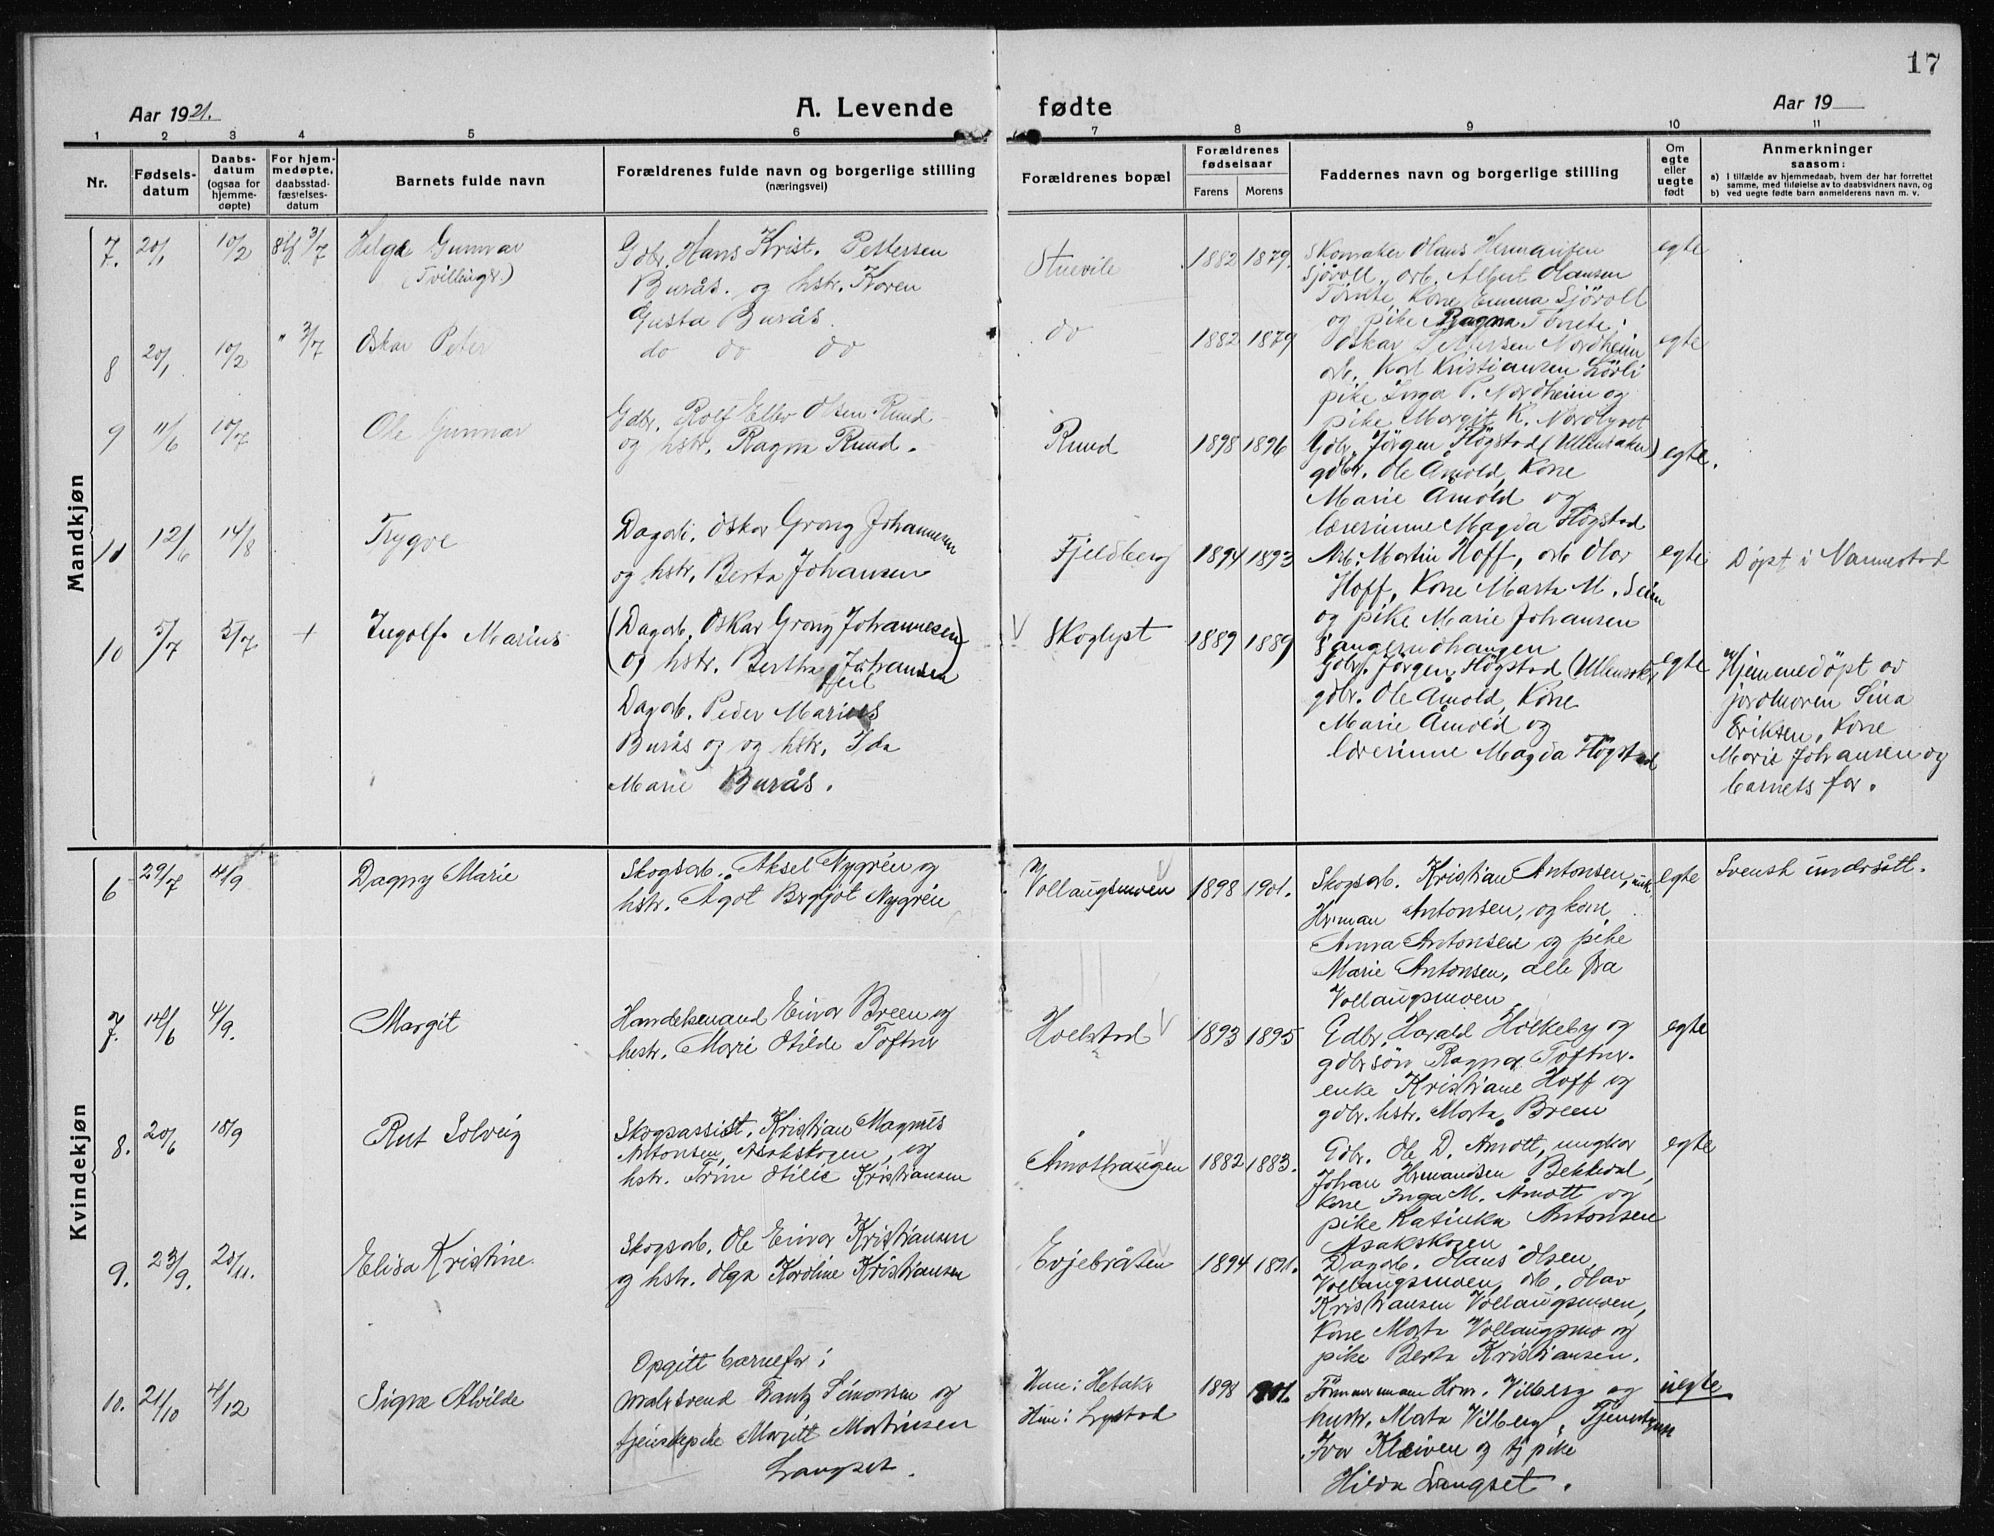 17
Aar 1921.
A. Levende fødte
Aar 19
1 2 3 4 5 6 7 8 9 10 11
Nr.
Fødsels-
datum
Daabs-
datum
(ogsaa for
hjemme-
døpte)
For hjem-
medøpte,
daabsstad-
fæstelses-
datum
Barnets fulde navn
Forældrenes fulde navn og borgerlige stilling
(næringsvei)
Forældrenes bopæl
Forældrenes
fødselsaar
Farens Morens
Faddernes navn og borgerlige stilling
Om
egte
eller
uegte
født
Anmerkninger
saasom:
a) I tilfælde av hjemmedaab, hvem der har forrettet
samme, med tilføielse av to daabsvidners navn, og
b) ved uegte fødte barn anmelderens navn m. v.
Mandkjøn
7. 20/1 10/2 3/7
Helge Gunnar
(Tvillingbr.)
Gdbr. Hans Krist. Pettersen
Burås. og hstr. Karen
Gusta Burås.
Stuevile
1882 1879.
Skomaker Olaus Hermansen
Sjøvoll, arb. Albert Olausen
Tømte, Kone Emma Sjøvoll
og pike Ragna Tømte;
egte
8 20/1 10/2 " 3/7
Oskar Peter
do do do
do
1882 1879
Oskar Pettersen Nordheim
arb. Karl Kristiansen Lövli
pike Inga P. Nordheim og
pike Margit K. Nordbyret
egte
9 11/6 10/7
Ole Gunnar
Gdbr. Rolf Ellev Olsen Rund
og hstr. Ragna Rund.
Rund
1898 1896
Gdbr. Jörgen Högstad (Ullensaker)
gdbr. Ole Åmold, Kone
Marie Åmold og
lærerinne Magda Högstad
egte.
10 12/6 14/8
Trygve
Dagarb. Oskar Grong Johannesen
og hstr. Berta Johansen
Fjeldberg
1894 1893
Arb. Martin Hoff, arb Olav
Hoff, Kone Marta M. Seim
og pike Marie Johansen
Sangerudhaugen
egte
Döpt i Nannestad
10 5/7 5/7 +
Ingolf Marius
(Dagarb. Oskar Grong Johannesen)
(og hstr. Bertha Johansen
feil
Dagarb. Peder Marius
Burås og og hstr. Ida
Marie Burås.
V Skoglyst
1889 1889
Gdbr. Jörgen Högstad (Ullensaker)
gdbr. Ole Åmold, Kone
Marie Åmold og
lærerinne Magda Högstad
egte
a) Hjemmedöpt av
jordmoren Sina
Eriksen, Kone
Marie Johansen og
barnets far.
Kvindekjøn
6 29/7 4/9
Dagny Marie
Skogsarb. Aksel Nygrén og
hstr. Agot Bergljot Nygrén
Vollaugsmoen
1898 1901.
Skogsarb. Kristian Antonsen, unk.
Herman Antonsen, og kone
Anna Antonsen og pike
Marie Antonsen, alle fra
Vollaugsmoen
egte
Svensk undersått.
7. 14/6 4/9.
Margit
Handelsmand Einar Breen og
hustr. Marie Otilde Toftner
Holstad
1893 1895
Gdbr. Harald Holkeby og
gdbrsön Ragna Toftner.
enke Kristiane Hoff og
gdbr. hstr. Marta Breen
egte
8. 20/6 18/9
Rut Solveig
Skogsassist. Kristian Magnus
Antonsen, Asakskogen, og
hstr. Trine Otilie Kristiansen
Åmothaugen
1882 1883.
Gdbr. Ole D. Åmott, ungkar
Johan Hermandsen Bekkedal,
kone Inga M. Åmott og
pike Katinka Antonsen
Asakskogen
egte
9. 23/9. 20/11.
Elisa Kristine
Skogsarb. Ole Einar Kristiansen
og hstr. Olga Karoline Kristiansen
Evjebråten
1894 1891.
Dagarb. Olaus Olsen,
Vollaugsmoen, arb. Olav
Kristiansen Vollaugsmoen,
Kone Marta Vollaugsmo og
pike Berta Kristiansen.
10. 21/10 4/12
Signe Alvilde
Opgitt barnefar:
malersvend Frantz Simonsen og
tjenestepike Margitt Martinsen
Langset.
Han:
Hun: Lystad
1898 1901.
Tömmermann Hans. Vilberg og
hustr. Marta Vilberg,
Ivar Kleiven og tj pike
Hilda Langset.
uegte